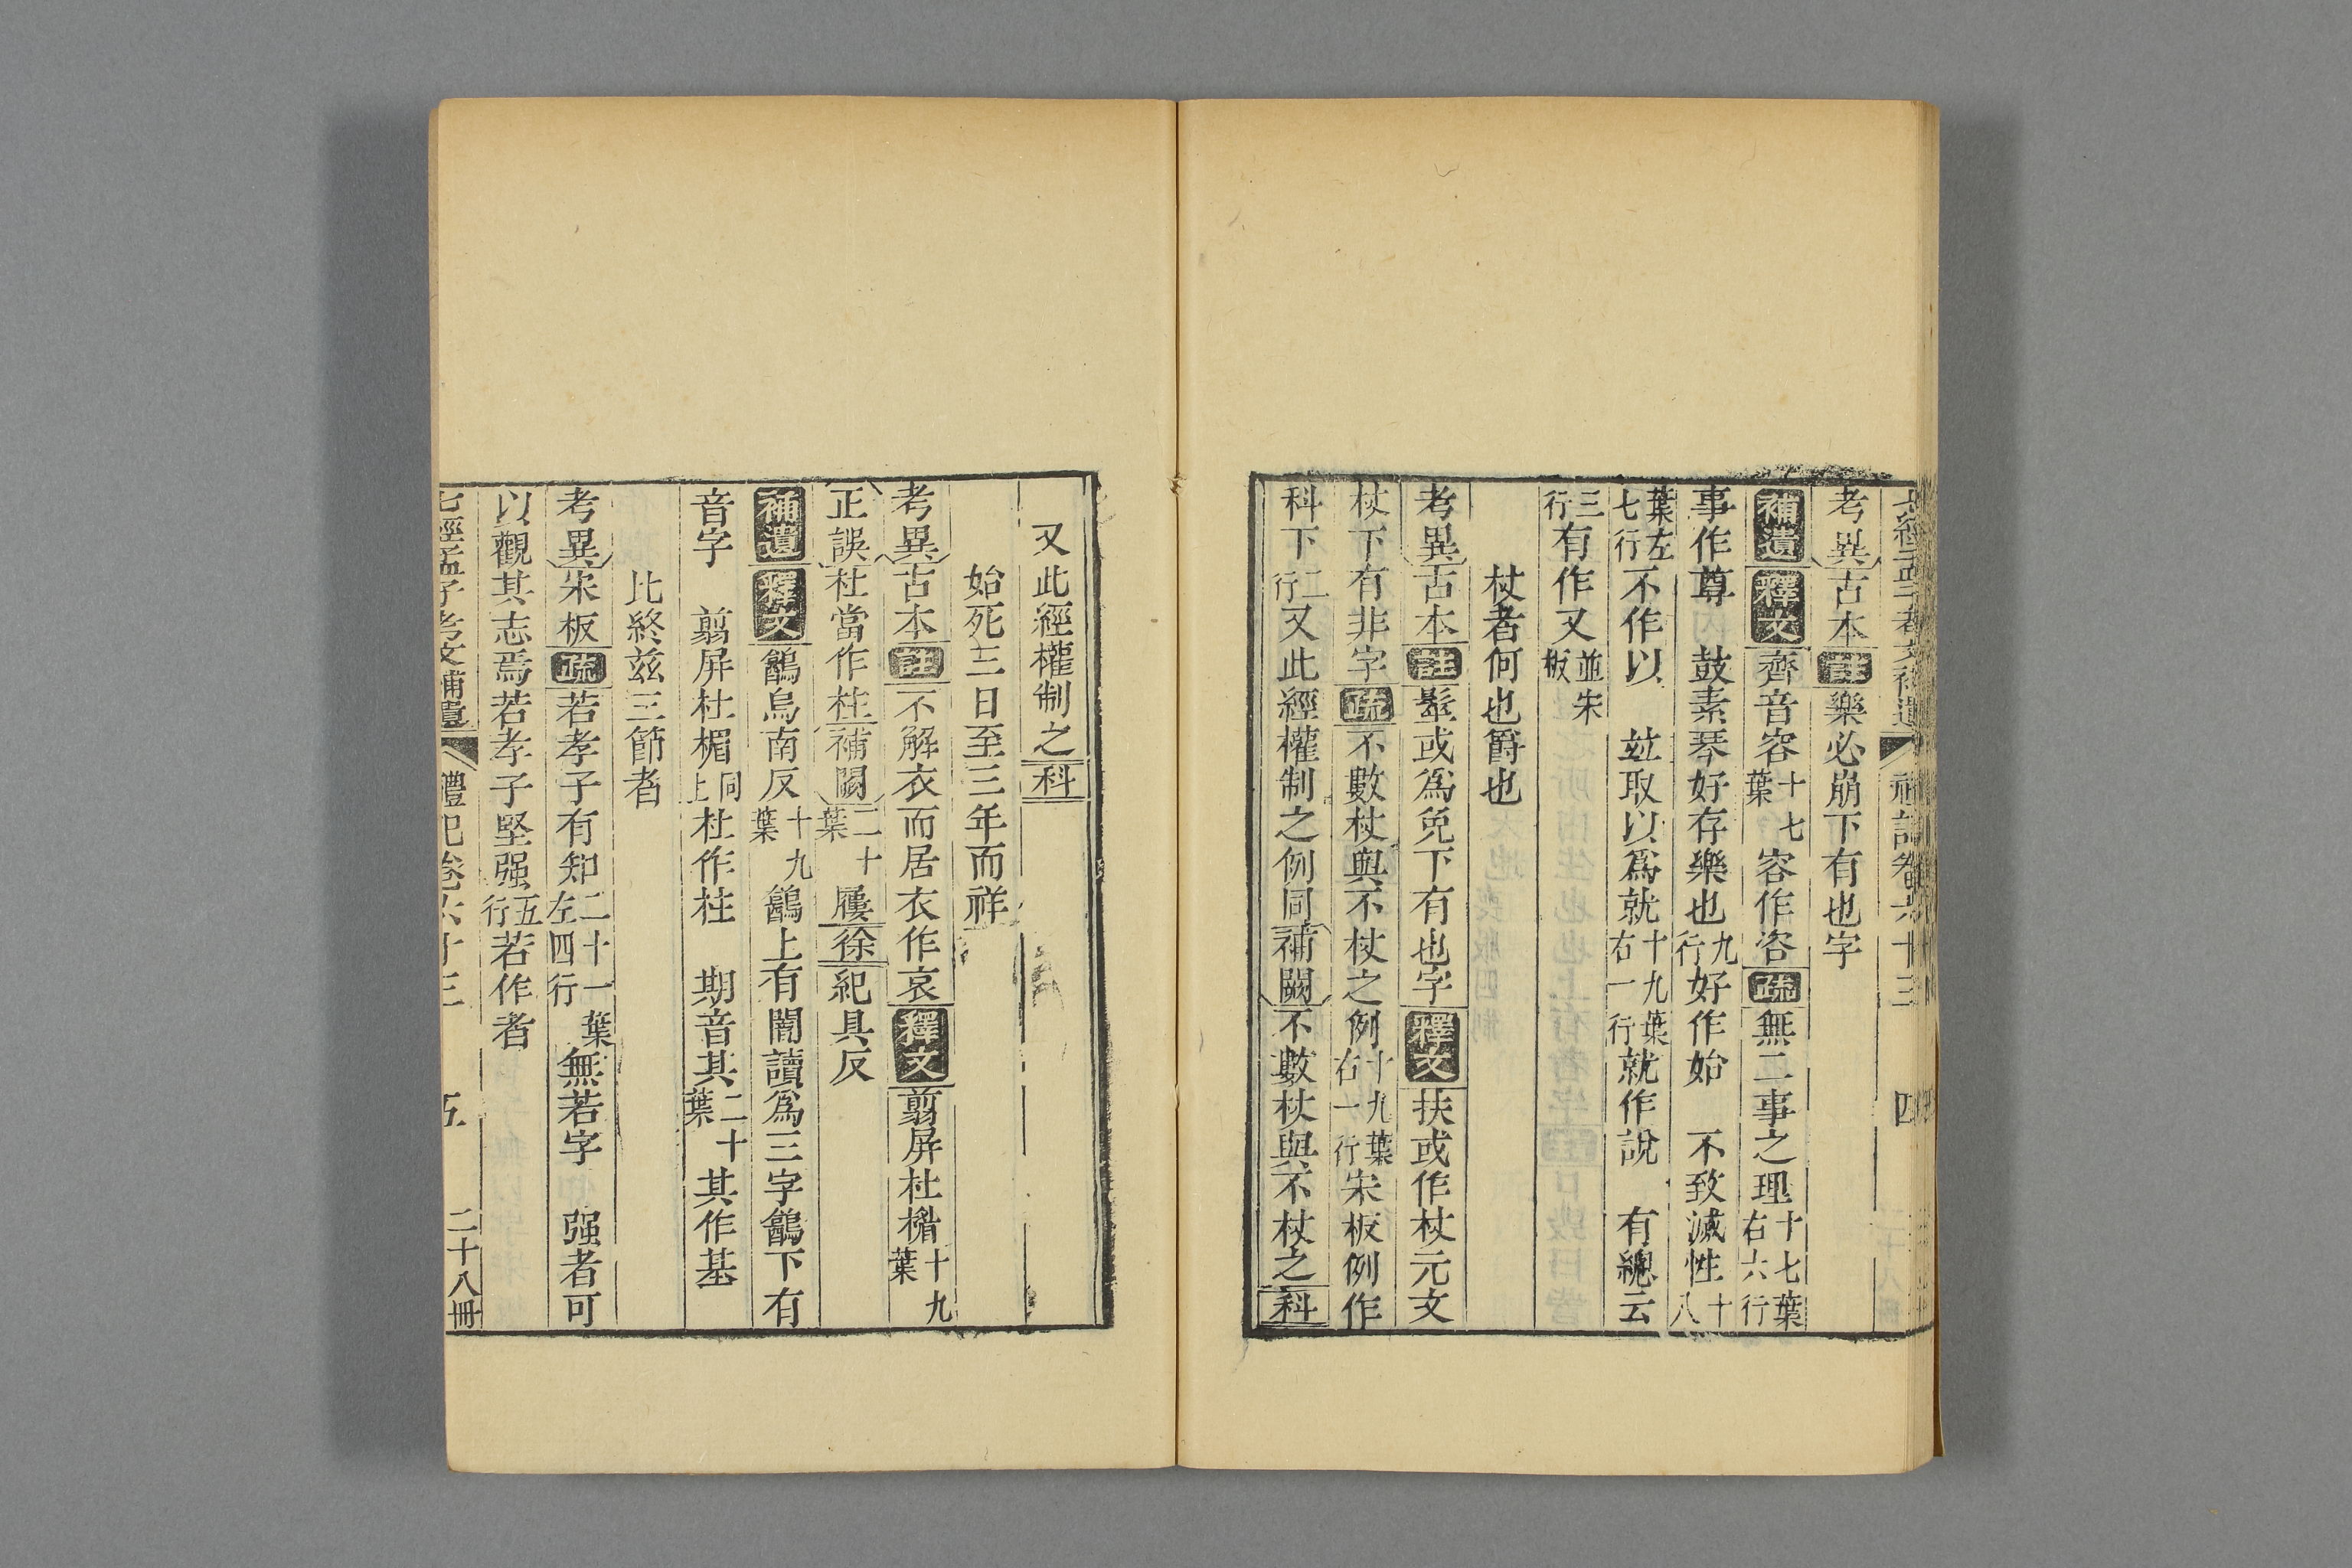 七經孟子考文補遺 禮記卷六十三 四
考異 古本 註 樂必崩下有也字
補遺 釋文 齊音容十七葉 容作咨 疏 無二事之理十七葉右六行
事作尊 鼓素琴好存樂也九行 好作始 不致滅性十八
葉左七行 不作以 竝取以爲就十九葉右一行 就作說 有總云
三行 有作又並宋板
杖者何也爵也
考異 古本 註 髽或爲免下有也字 釋文 扶或作杖元文
杖下有非字 疏 不數杖與不杖之例十九葉右一行 宋板例作
科下二行 又此經權制之例同 補闕 不數杖與不杖之科
又此經權制之科
始死三日至三年而祥
考異 古本 註 不解衣而居衣作哀 釋文 翦屏杜楣十九葉
正誤 杜當作柱 補闕 二十葉 屨徐紀具反
補遺 釋文 鶕烏南反十九葉 鶕上有闇讀爲三字鶕下有
音字 翦屏杜楣同上 杜作柱 期音其二十葉 其作基
比終茲三節者
考異 宋板 疏 若孝子有知二十一葉左四行 無若字 强者可
以觀其志焉若孝子堅强五行 若作者
七經孟子考文補遺 禮記卷六十三 五 二十八冊